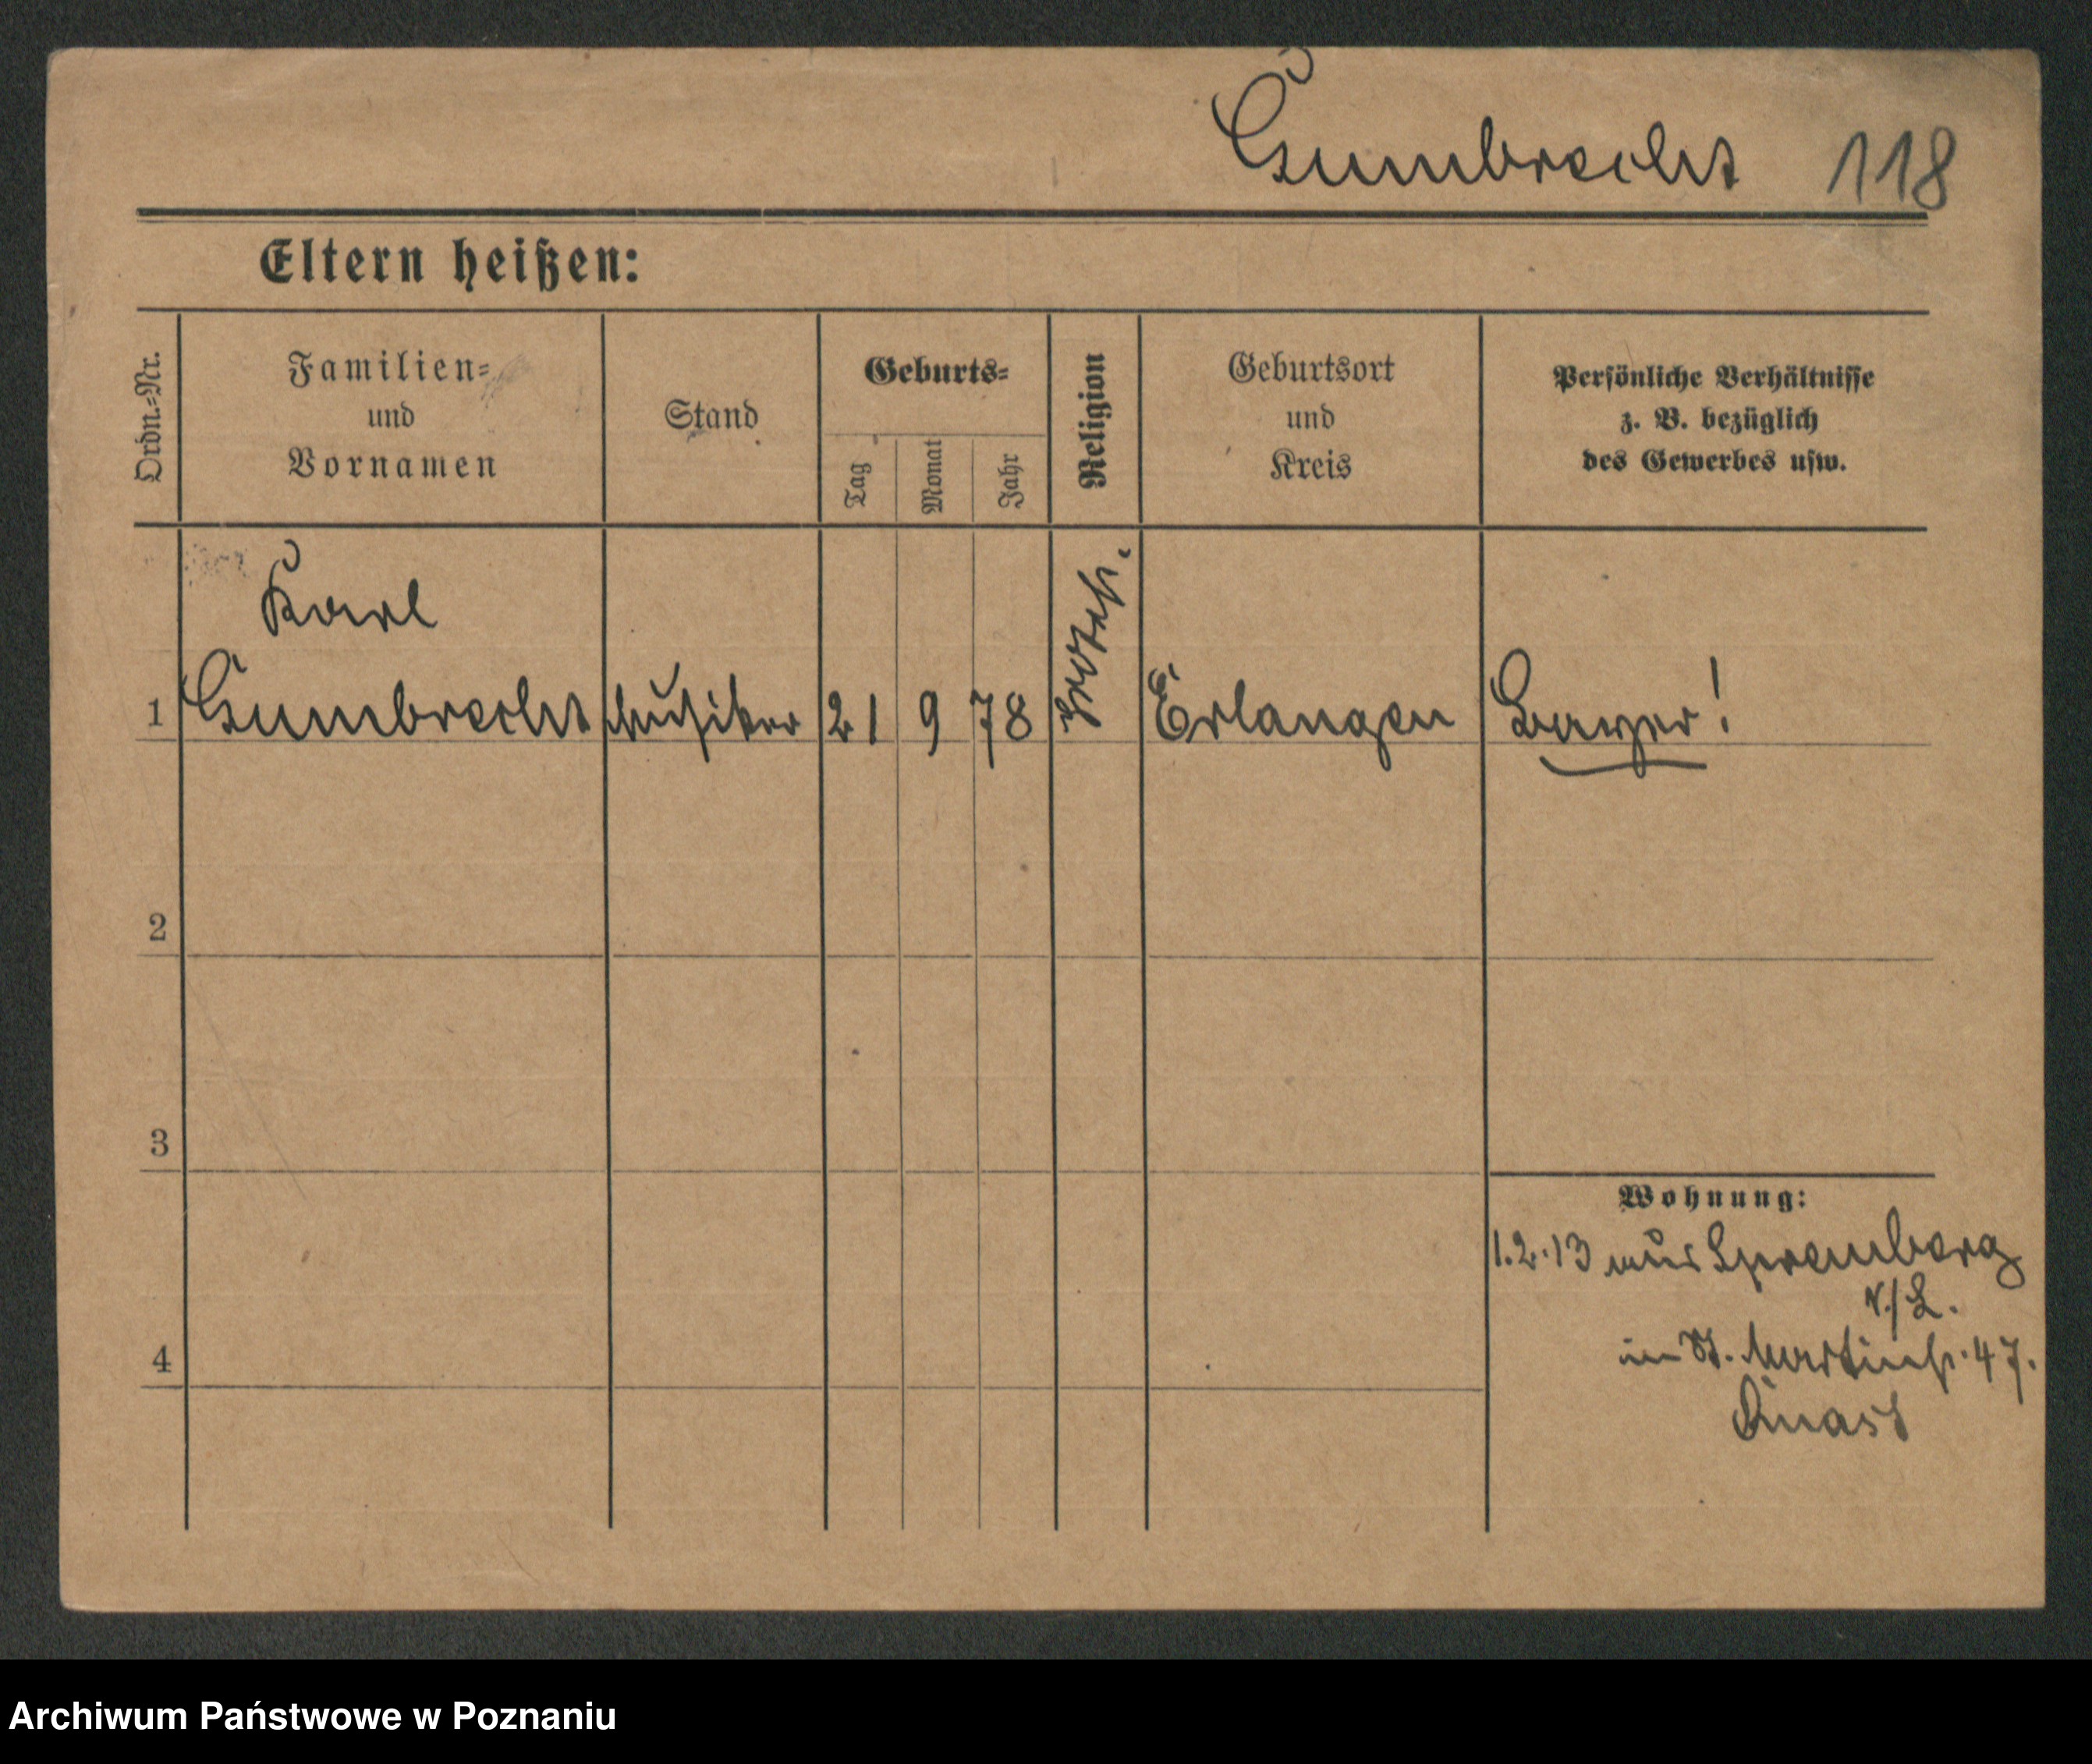 Gumbrecht 118
Eltern heißen:
Ordn.-Nr.
Familien-
und
Vornamen
Stand
Geburts-
Tag
Monat
Jahr
Religion
Geburtsort
und
Kreis
Persönliche Verhältnisse
z. B. bezüglich
des Gewerbes usw.
Karl
1 Gumbrecht Musiker 21 9 78 Erlangen Bayer!
2
3
Wohnung:
1.2.13 aus Spremberg
L.
in St. Martinstr. 47.
4
Quast
Archiwum Państwowe w Poznaniu